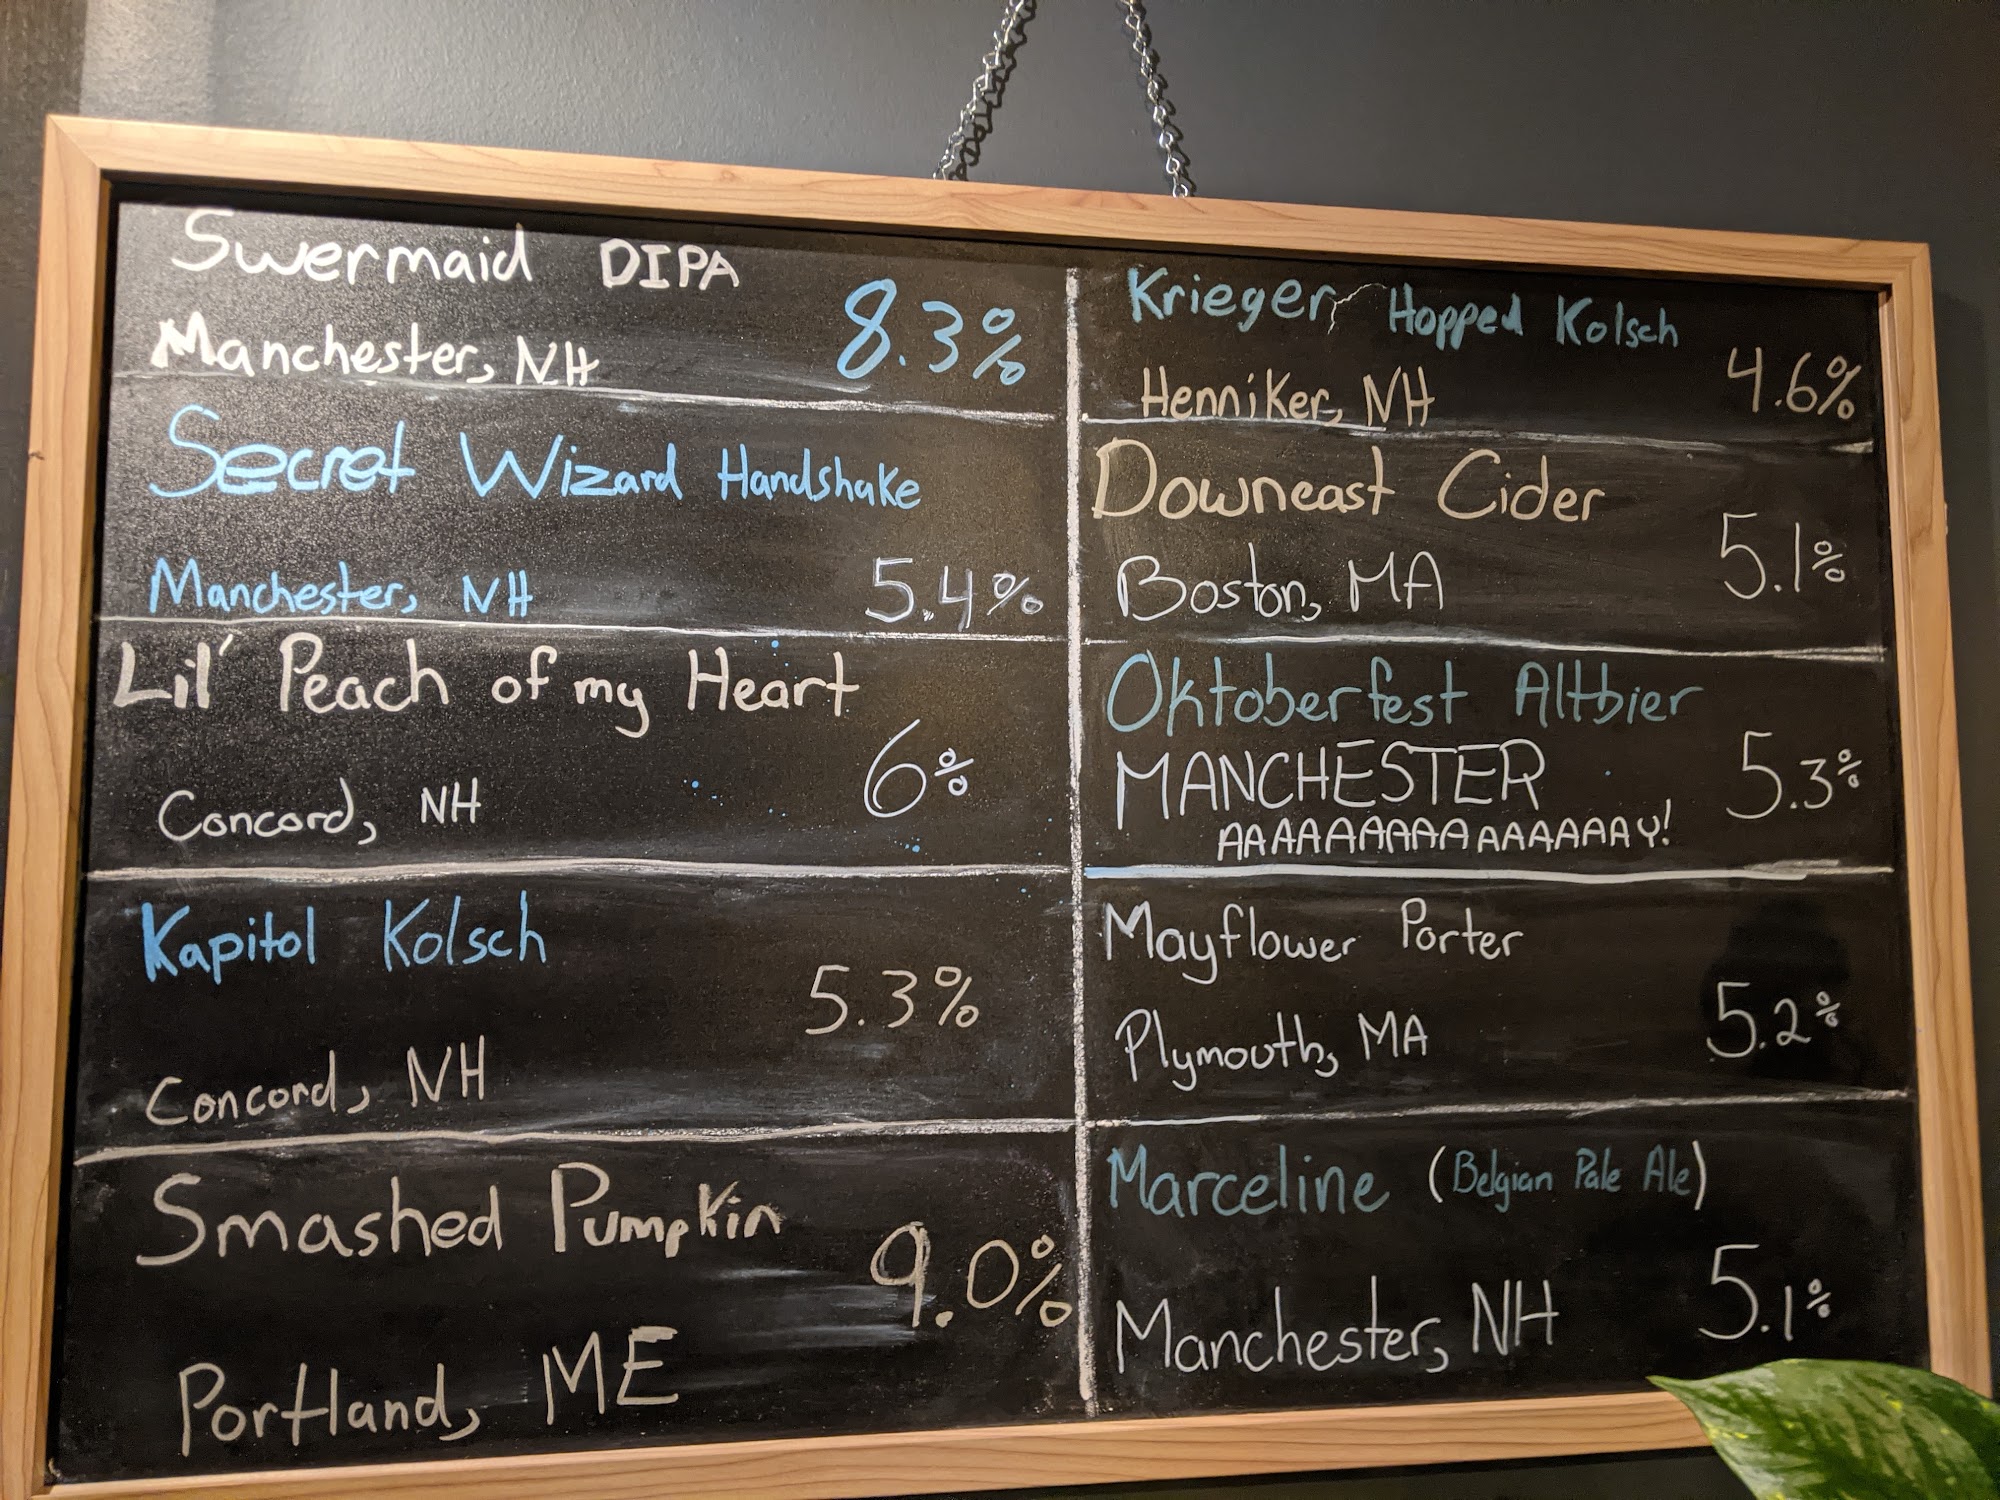 Swermaid DIPA
8.3%
Manchester, NH
Secret Wizard Handshake
Manchester, NH
5.4%
Lil' Peach of my Heart
6%
Concord, NH
Kapitol Kolsch
5.3%
Concord, NH
Smashed Pumpkin
9.0%
Portland, ME
Krieger Hopped Kolsch
4.6%
Henniker, NH
Downeast Cider
5.1%
Boston, MA
Oktoberfest Altbier
MANCHESTER
5.3%
AAAAAAAAAAAAAAAAY!
Mayflower Porter
5.2%
Plymouth, MA
Marceline (Belgian Pale Ale)
5.1%
Manchester, NH